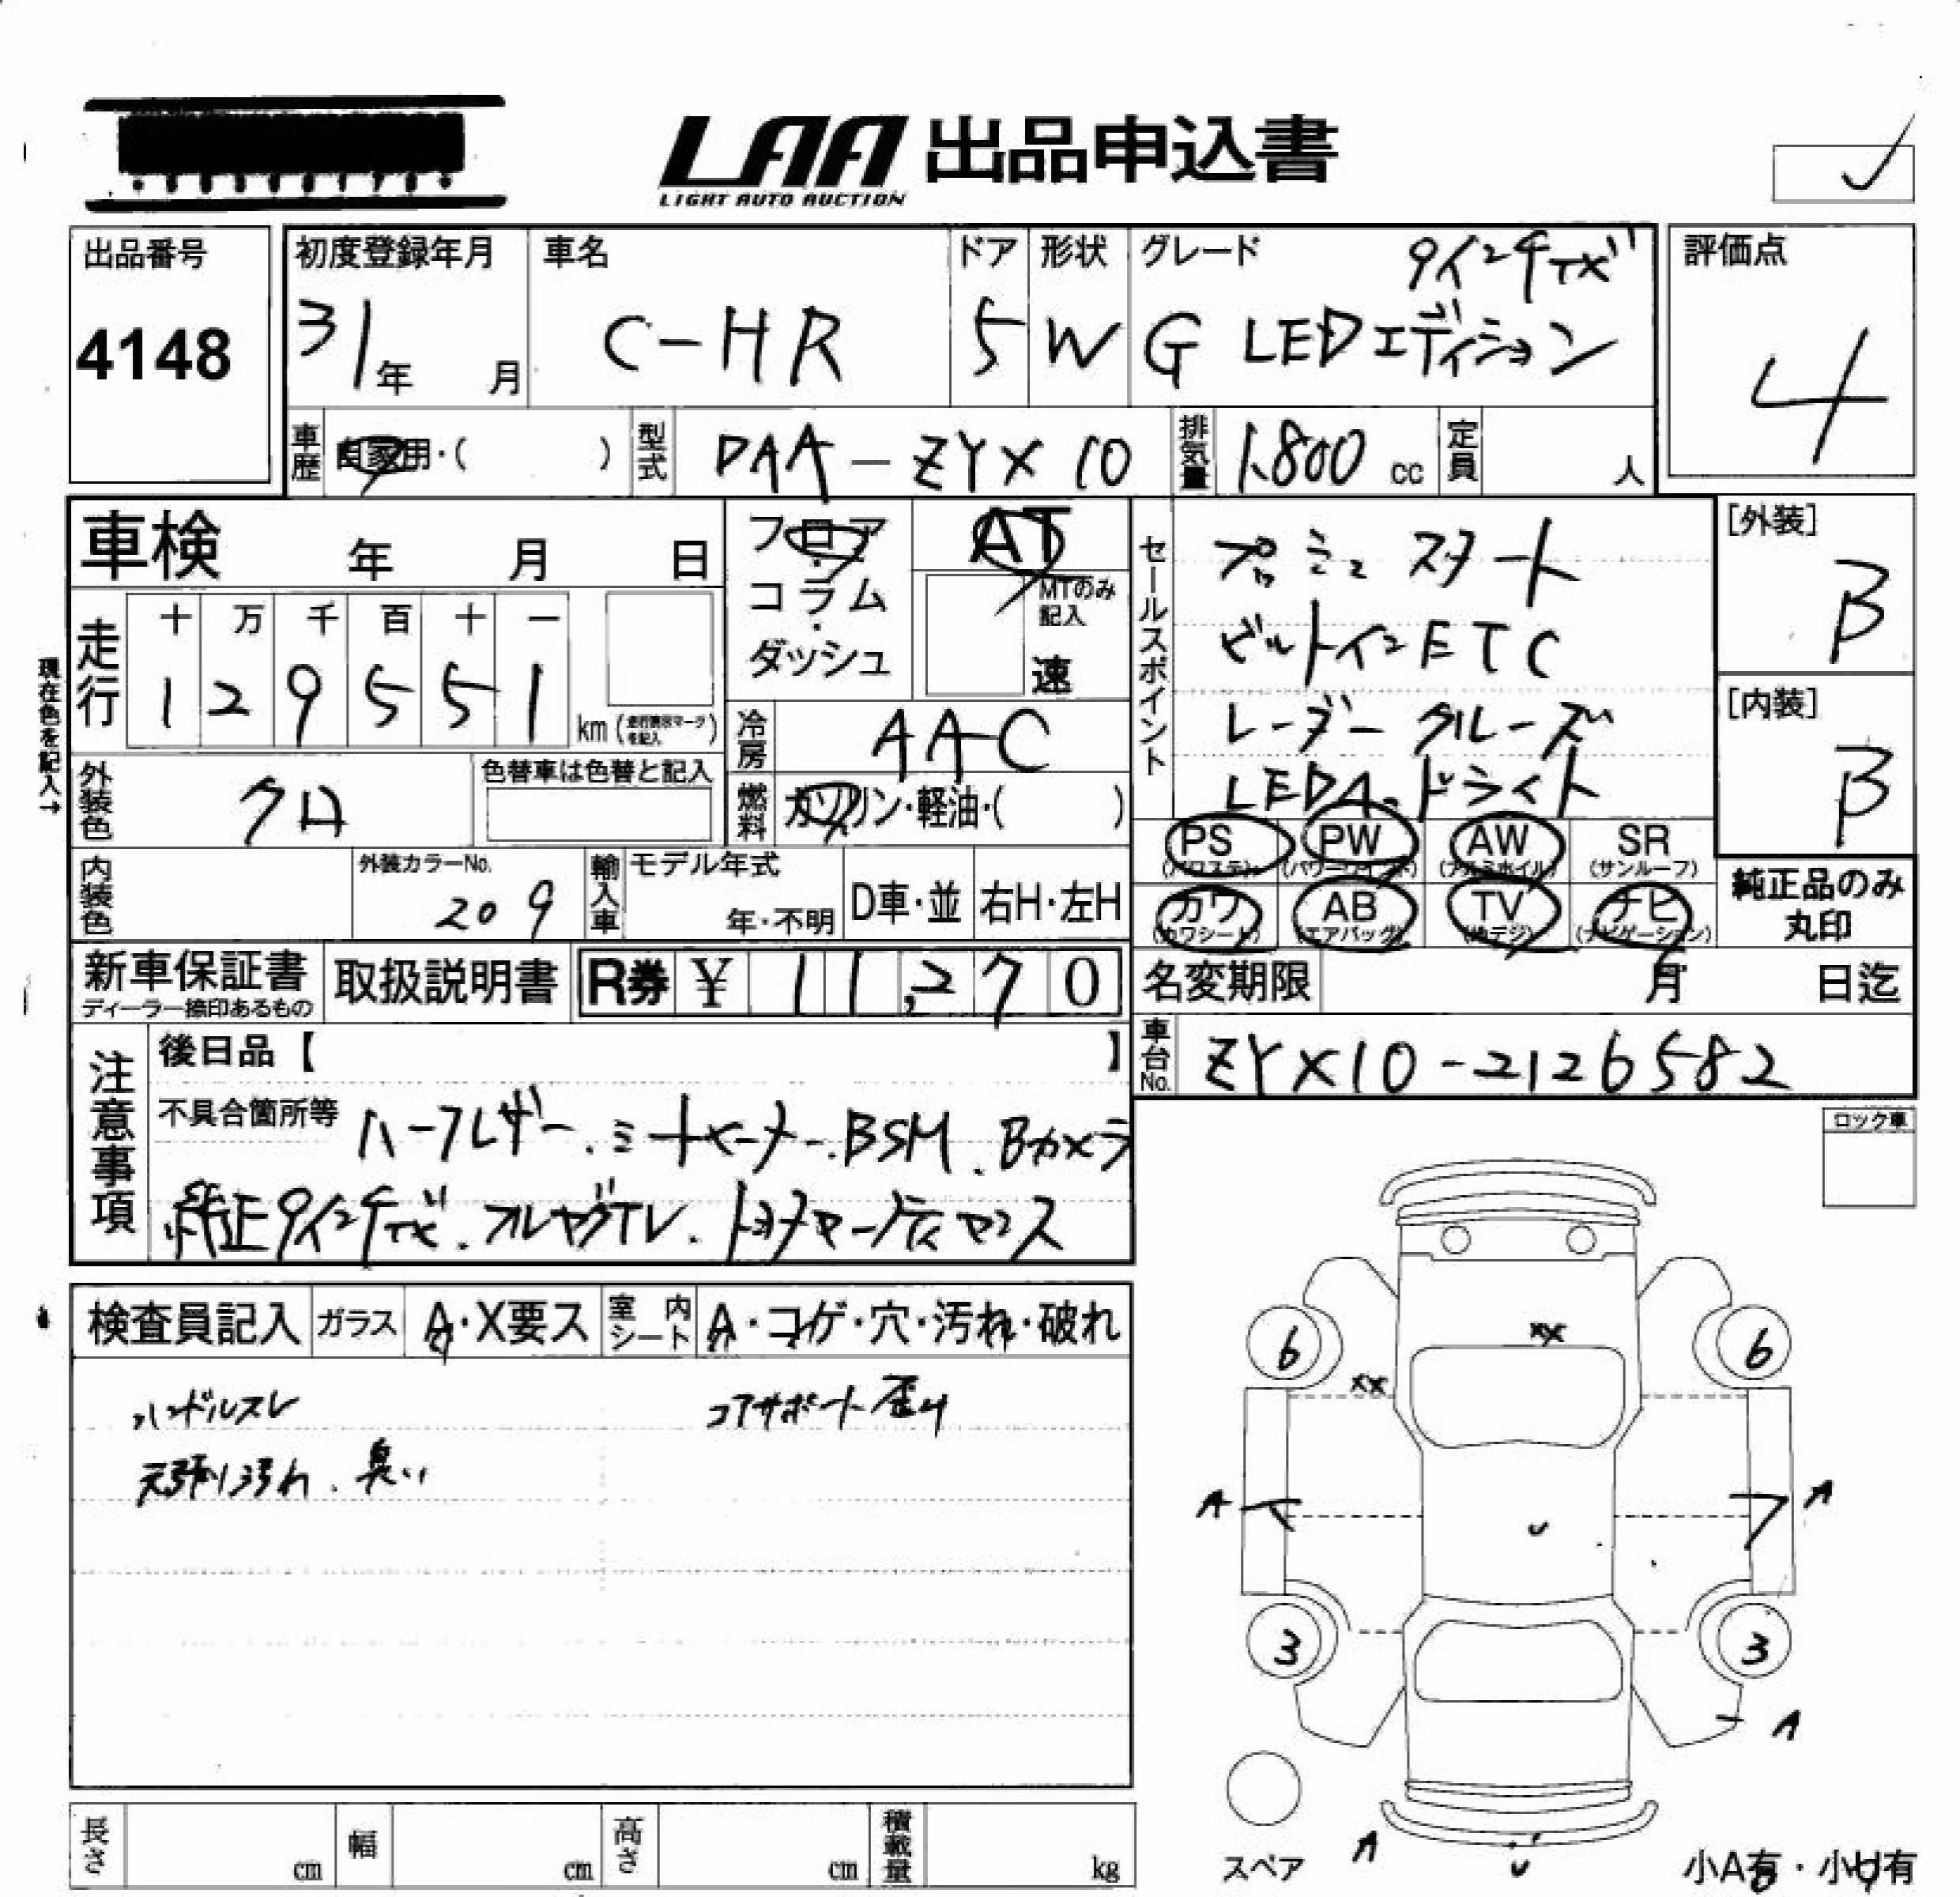 LAA 出品申込書
LIGHT AUTO AUCTION
出品番号
4148
初度登録年月
31年 月
車名
C-HR
ドア
5
形状
W
グレード
9インチTX
G LEDエディション
評価点
4
車歴 自家用・( )
型式 DAA-ZYX10
排気量 1,800 cc
定員 人
車検 年 月 日
フロア・コラム・ダッシュ
AT
MTのみ記入
速
セールスポイント
プッシュスタート
ビルトインETC
レーダークルーズ
LEDヘッドライト
[外装]
B
[内装]
B
現在色を記入→
走行
十 万 千 百 十 一
1 2 9 5 5 1
km
冷房 AAC
外装色 クロ
色替車は色替と記入
燃料 ガソリン・軽油・( )
PS (パワステ)
PW (パワーウインド)
AW (アルミホイル)
SR (サンルーフ)
内装色
外装カラーNo.
209
輸入車
モデル年式
年・不明
D車・並
右H・左H
カワ (カワシート)
AB (エアバッグ)
TV (地デジ)
ナビ (ナビゲーション)
純正品のみ丸印
新車保証書
ディーラー捺印あるもの
取扱説明書
R券 ¥ 11,270
名変期限 月 日迄
車台No. ZYX10-2126582
注意事項
後日品【 】
不具合箇所等 ハーフレザー.シートヒーター.BSM.Bカメラ
純正9インチTX.フルセグTV.トヨタ
ロック車
検査員記入
ガラス A・X要ス
室内シート A・コゲ・穴・汚れ・破れ
ハンドルスレ
コアサポート歪み
天張り汚れ.臭い
6 6
XX
XX
A A
U
3 3
A
スペア
A
U
小A有・小U有
長さ cm
幅 cm
高さ cm
積載量 kg